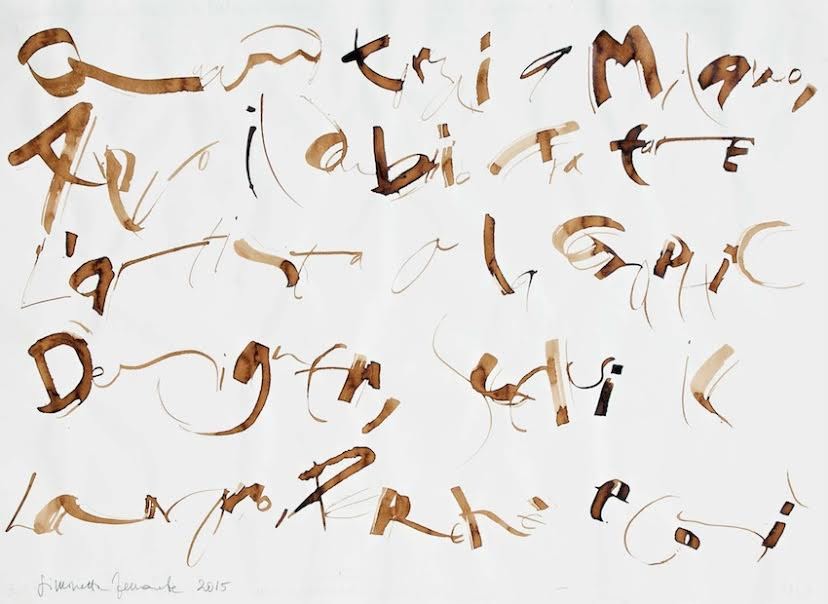 a Milano,
il dubbio fra fare
L'artista o la Graphic
Designer, scelsi il
Lavoro, Perché è così
Simonetta Ferrante 2015